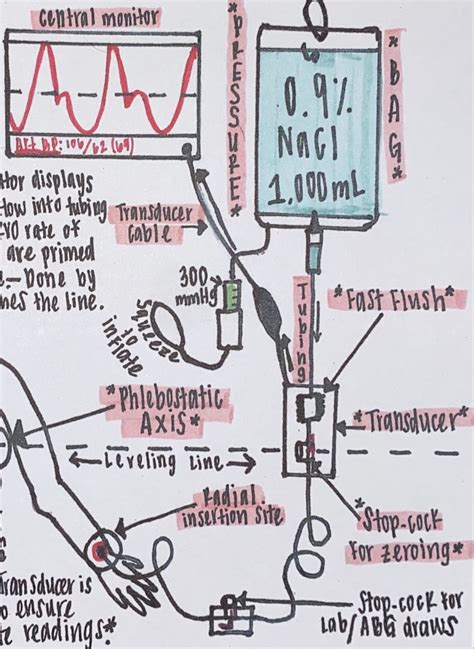 Central monitor
Art BP: 106/62 (69)
*PRESSURE*
*BAG*
0.9%
NaCl
1,000mL
displays
flow into tubing
rate of
are primed
- Done by
the line.
Transducer
Cable
300
mmHg
squeeze
to
inflate
Tubing
*Fast Flush*
*Phlebostatic
AXIS*
*Transducer*
Leveling line
Radial
insertion site
*Stop-cock
for zeroing*
Transducer is
ensure
readings.*
Stop-cock for
Lab/ABG draws